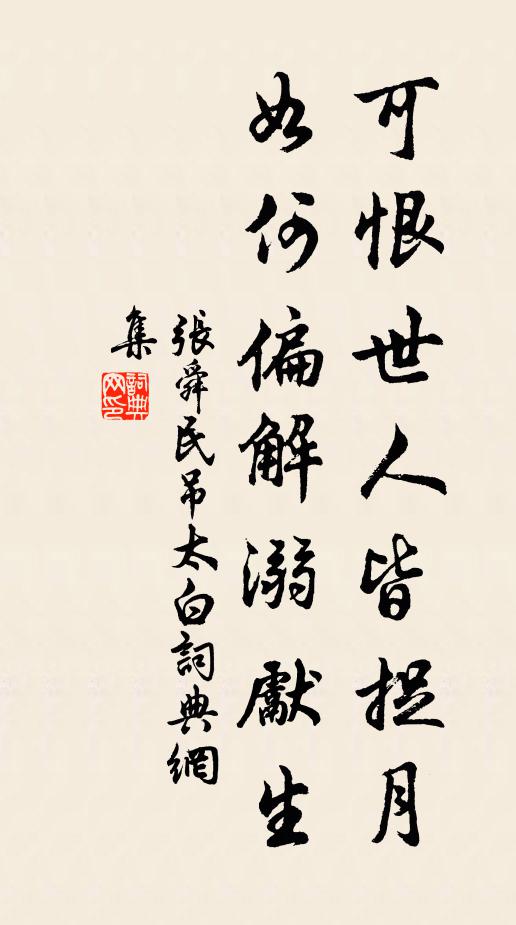 可恨世人皆捉月
如何偏解溺獻生
張舜民吊太白詞典網
集
詞典
网印